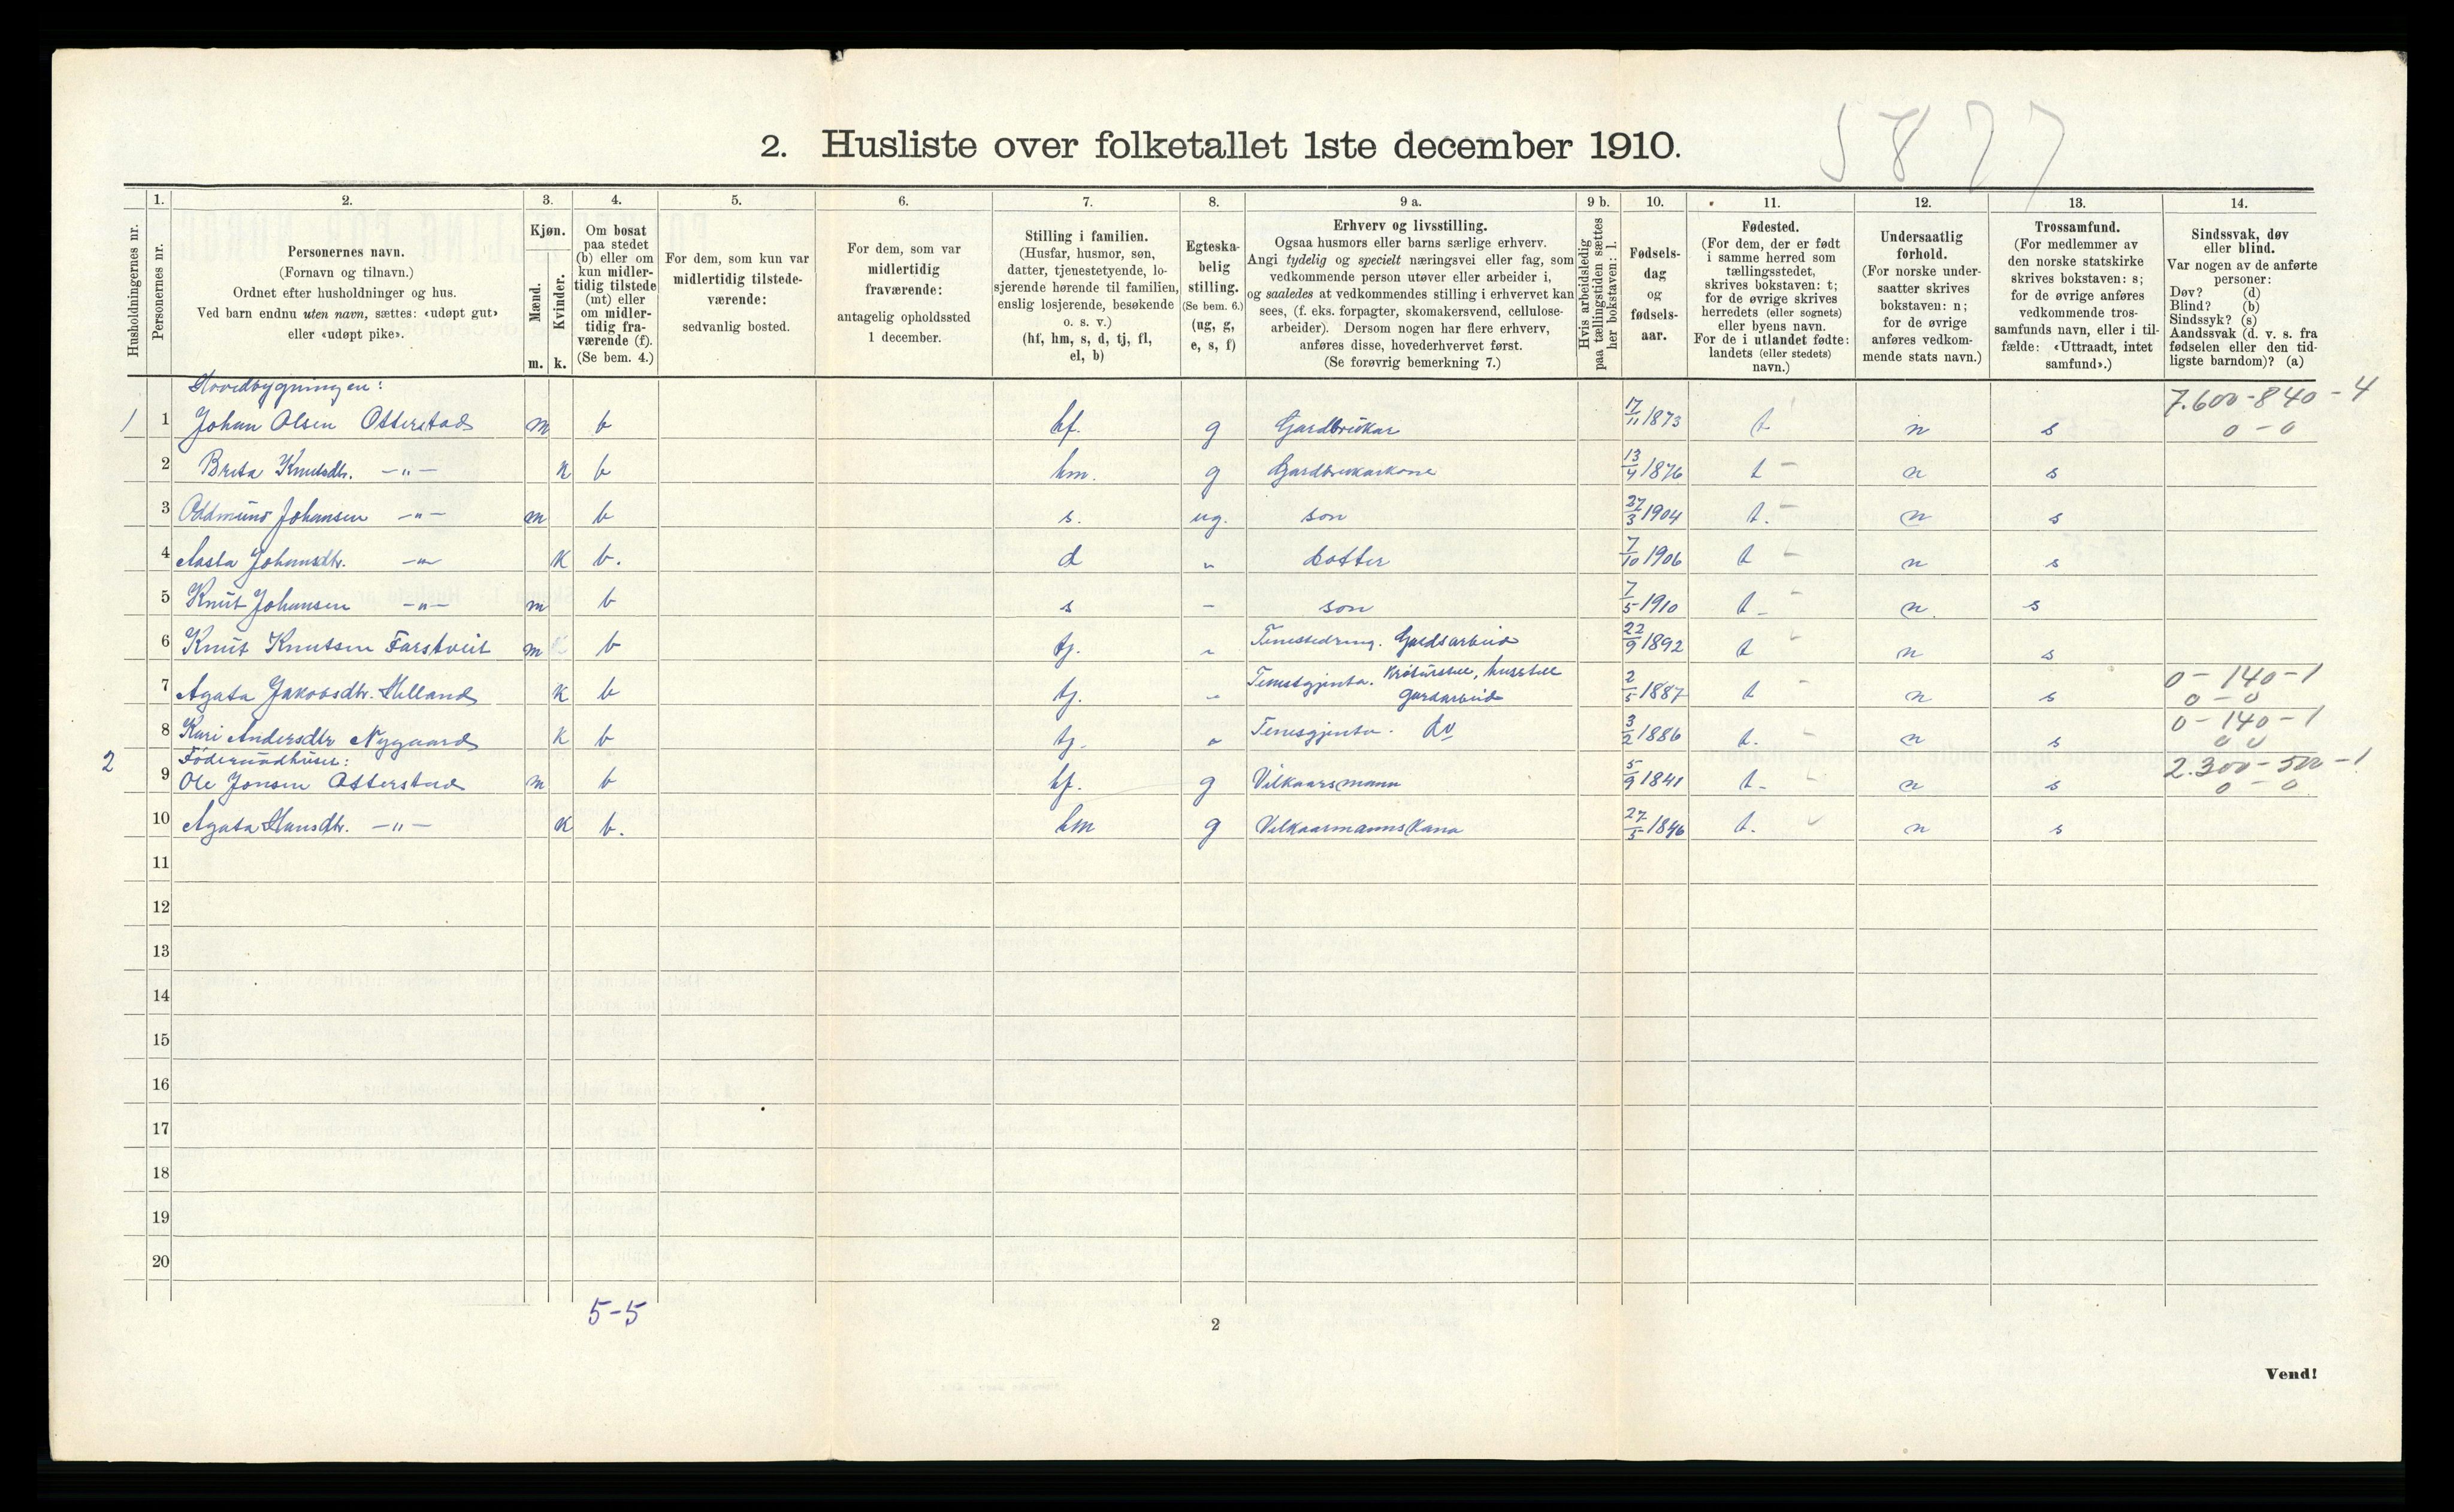 5877
2. Husliste over folketallet 1ste december 1910.
Husholdningernes nr.
1.
Personernes nr.
2.
Personernes navn.
(Fornavn og tilnavn.)
Ordnet efter husholdninger og hus.
Ved barn endnu uten navn, sættes: «udøpt gut»
eller «udøpt pike».
3.
Kjøn.
Mænd.
m.
Kvinder.
k.
4.
Om bosat
paa stedet
(b) eller om
kun midler-
tidig tilstede
(mt) eller
om midler-
tidig fra-
værende (f).
(Se bem. 4.)
5.
For dem, som kun var
midlertidig tilstede-
værende:
sedvanlig bosted.
6.
For dem, som var
midlertidig
fraværende:
antagelig opholdssted
1 december.
7.
Stilling i familien.
(Husfar, husmor, søn,
datter, tjenestetyende, lo-
sjerende hørende til familien,
enslig losjerende, besøkende
o. s. v.)
(hf, hm, s, d, tj, fl,
el, b)
8.
Egteska-
belig
stilling.
(Se bem. 6.)
(ug, g,
e, s, f)
9 a.
Erhverv og livsstilling.
Ogsaa husmors eller barns særlige erhverv.
Angi tydelig og specielt næringsvei eller fag, som
vedkommende person utøver eller arbeider i,
og saaledes at vedkommendes stilling i erhvervet kan
sees, (f. eks. forpagter, skomakersvend, cellulose-
arbeider). Dersom nogen har flere erhverv,
anføres disse, hovederhvervet først.
(Se forøvrig bemerkning 7.)
9 b.
Hvis arbeidsledig
paa tællingstiden sættes
her bokstaven: l.
10.
Fødsels-
dag
og
fødsels-
aar.
11.
Fødested.
(For dem, der er født
i samme herred som
tællingsstedet,
skrives bokstaven: t;
for de øvrige skrives
herredets (eller sognets)
eller byens navn.
For de i utlandet fødte:
landets (eller stedets)
navn.)
12.
Undersaatlig
forhold.
(For norske under-
saatter skrives
bokstaven: n;
for de øvrige
anføres vedkom-
mende stats navn.)
13.
Trossamfund.
(For medlemmer av
den norske statskirke
skrives bokstaven: s;
for de øvrige anføres
vedkommende tros-
samfunds navn, eller i til-
fælde: «Uttraadt, intet
samfund».)
14.
Sindssvak, døv
eller blind.
Var nogen av de anførte
personer:
Døv? (d)
Blind? (b)
Sindssyk? (s)
Aandssvak (d. v. s. fra
fødselen eller den tid-
ligste barndom)? (a)
Hovedbygningen:
7.600-840-4
1 1 Johan Olsen Otterstad m b hf. g Gardbrukar 17/11 1873 t n s 0-0
2 Brita Knutsdtr. -"- k b hm. g Gardbrukarkone 13/4 1876 t n s
3 Oddmund Johansen -"- m b s. ug. son 27/3 1904 t. n s
4 Aasta Johansdtr. -"- k b. d " dotter 7/10 1906 t n s
5 Knut Johansen -"- m b s - son 7/5 1910 t n. s
6 Knut Knutsen Farstveit m b tj. " Tenestedreng. Gardsarbeid 22/9 1892 t n s
7 Agata Jakobsdtr. Helland k b tj. " Tenestgjenta. Krøturstell, husstell 2/5 1887 t n s 0-140-1
Gardarbeid 0-0
8 Kari Andersdtr Nygaard k b tj. " Tenesgjenta. do 3/2 1886 t. n s 0-140-1
0 0
Føderaadhuset:
2 9 Ole Jonsen Otterstad m b hf. g Vilkaarsmann 5/9 1841 t. n s 2.300-500-1
0-0
10 Agata Hansdtr. -"- k b. hm g Vilkaarmanns Kana 27/5 1846 t. n s
11
12
13
14
15
16
17
18
19
20
5-5
2
Vend!